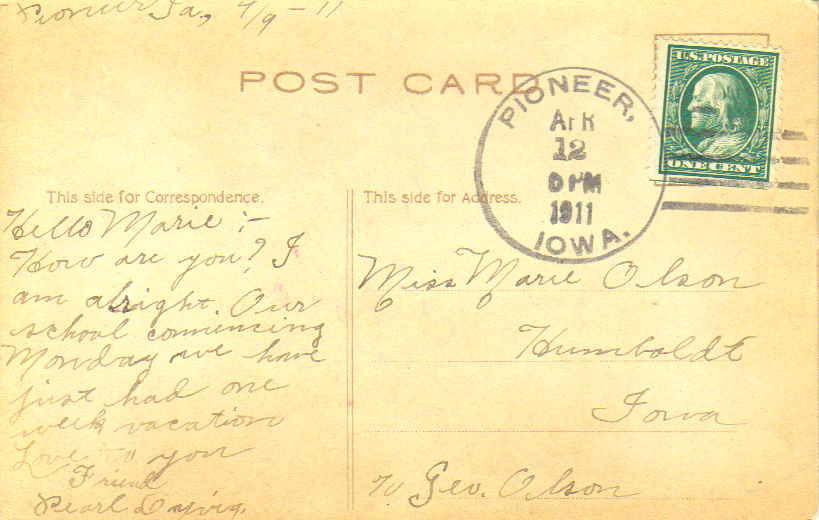 Pioneer Ia, 4/9-11
POST CARD
U.S. POSTAGE
ONE CENT
PIONEER,
APR
12
PM
1911
IOWA.
This side for Correspondence.
Hello Marie :-
How are you? I
am alright. Our
school commencing
Monday we have
just had one
week vacation
Love to you
Friend
Pearl
This side for Address.
Miss Marie Olson
Humboldt
Iowa
Geo. Olson